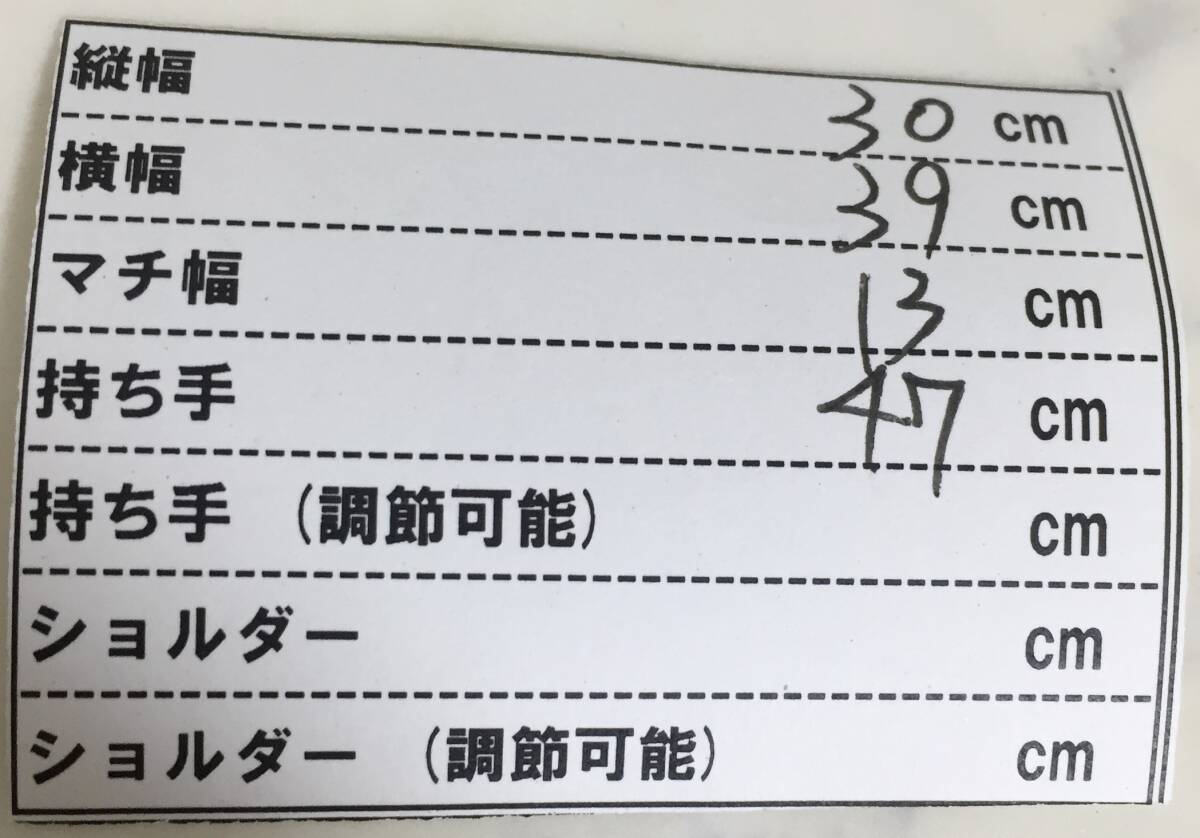 縦幅 30 cm
横幅 39 cm
マチ幅 13 cm
持ち手 47 cm
持ち手 (調節可能) cm
ショルダー cm
ショルダー (調節可能) cm